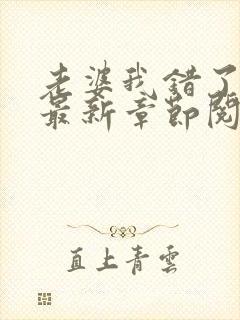 老婆我错了
最新章节阅
直上青雲